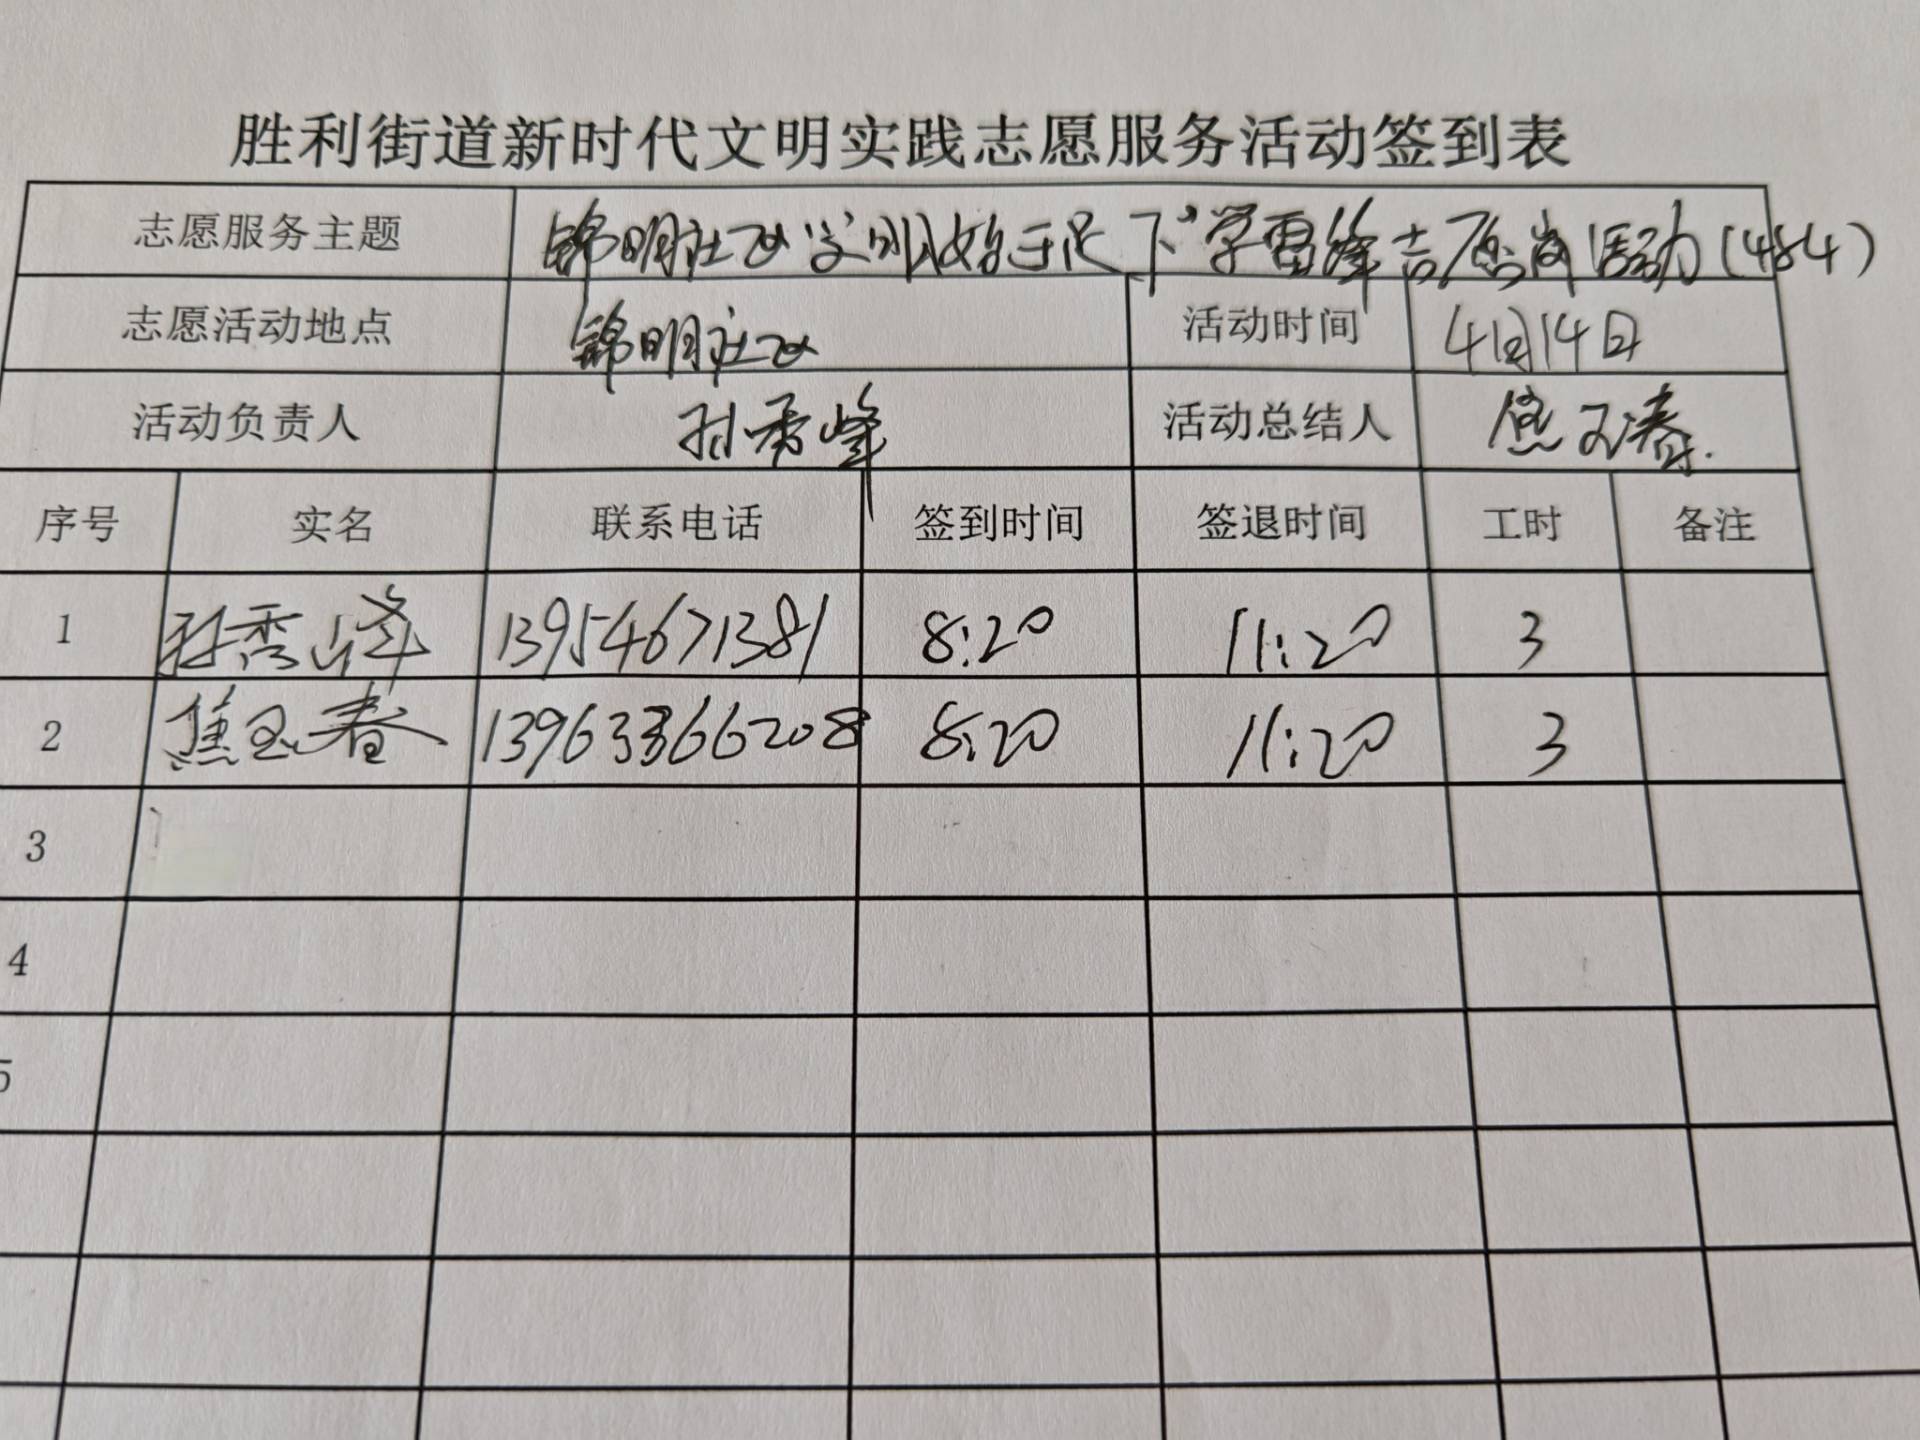 胜利街道新时代文明实践志愿服务活动签到表
志愿服务主题 锦明社区"文明始于足下"学雷锋志愿岗活动(484)
志愿活动地点 锦明社区 活动时间 4月14日
活动负责人 孙秀峰 活动总结人 焦玉春.
序号 实名 联系电话 签到时间 签退时间 工时 备注
1 孙秀峰 13954671381 8:20 11:20 3
2 焦玉春 13963366208 8:20 11:20 3
3
4
5